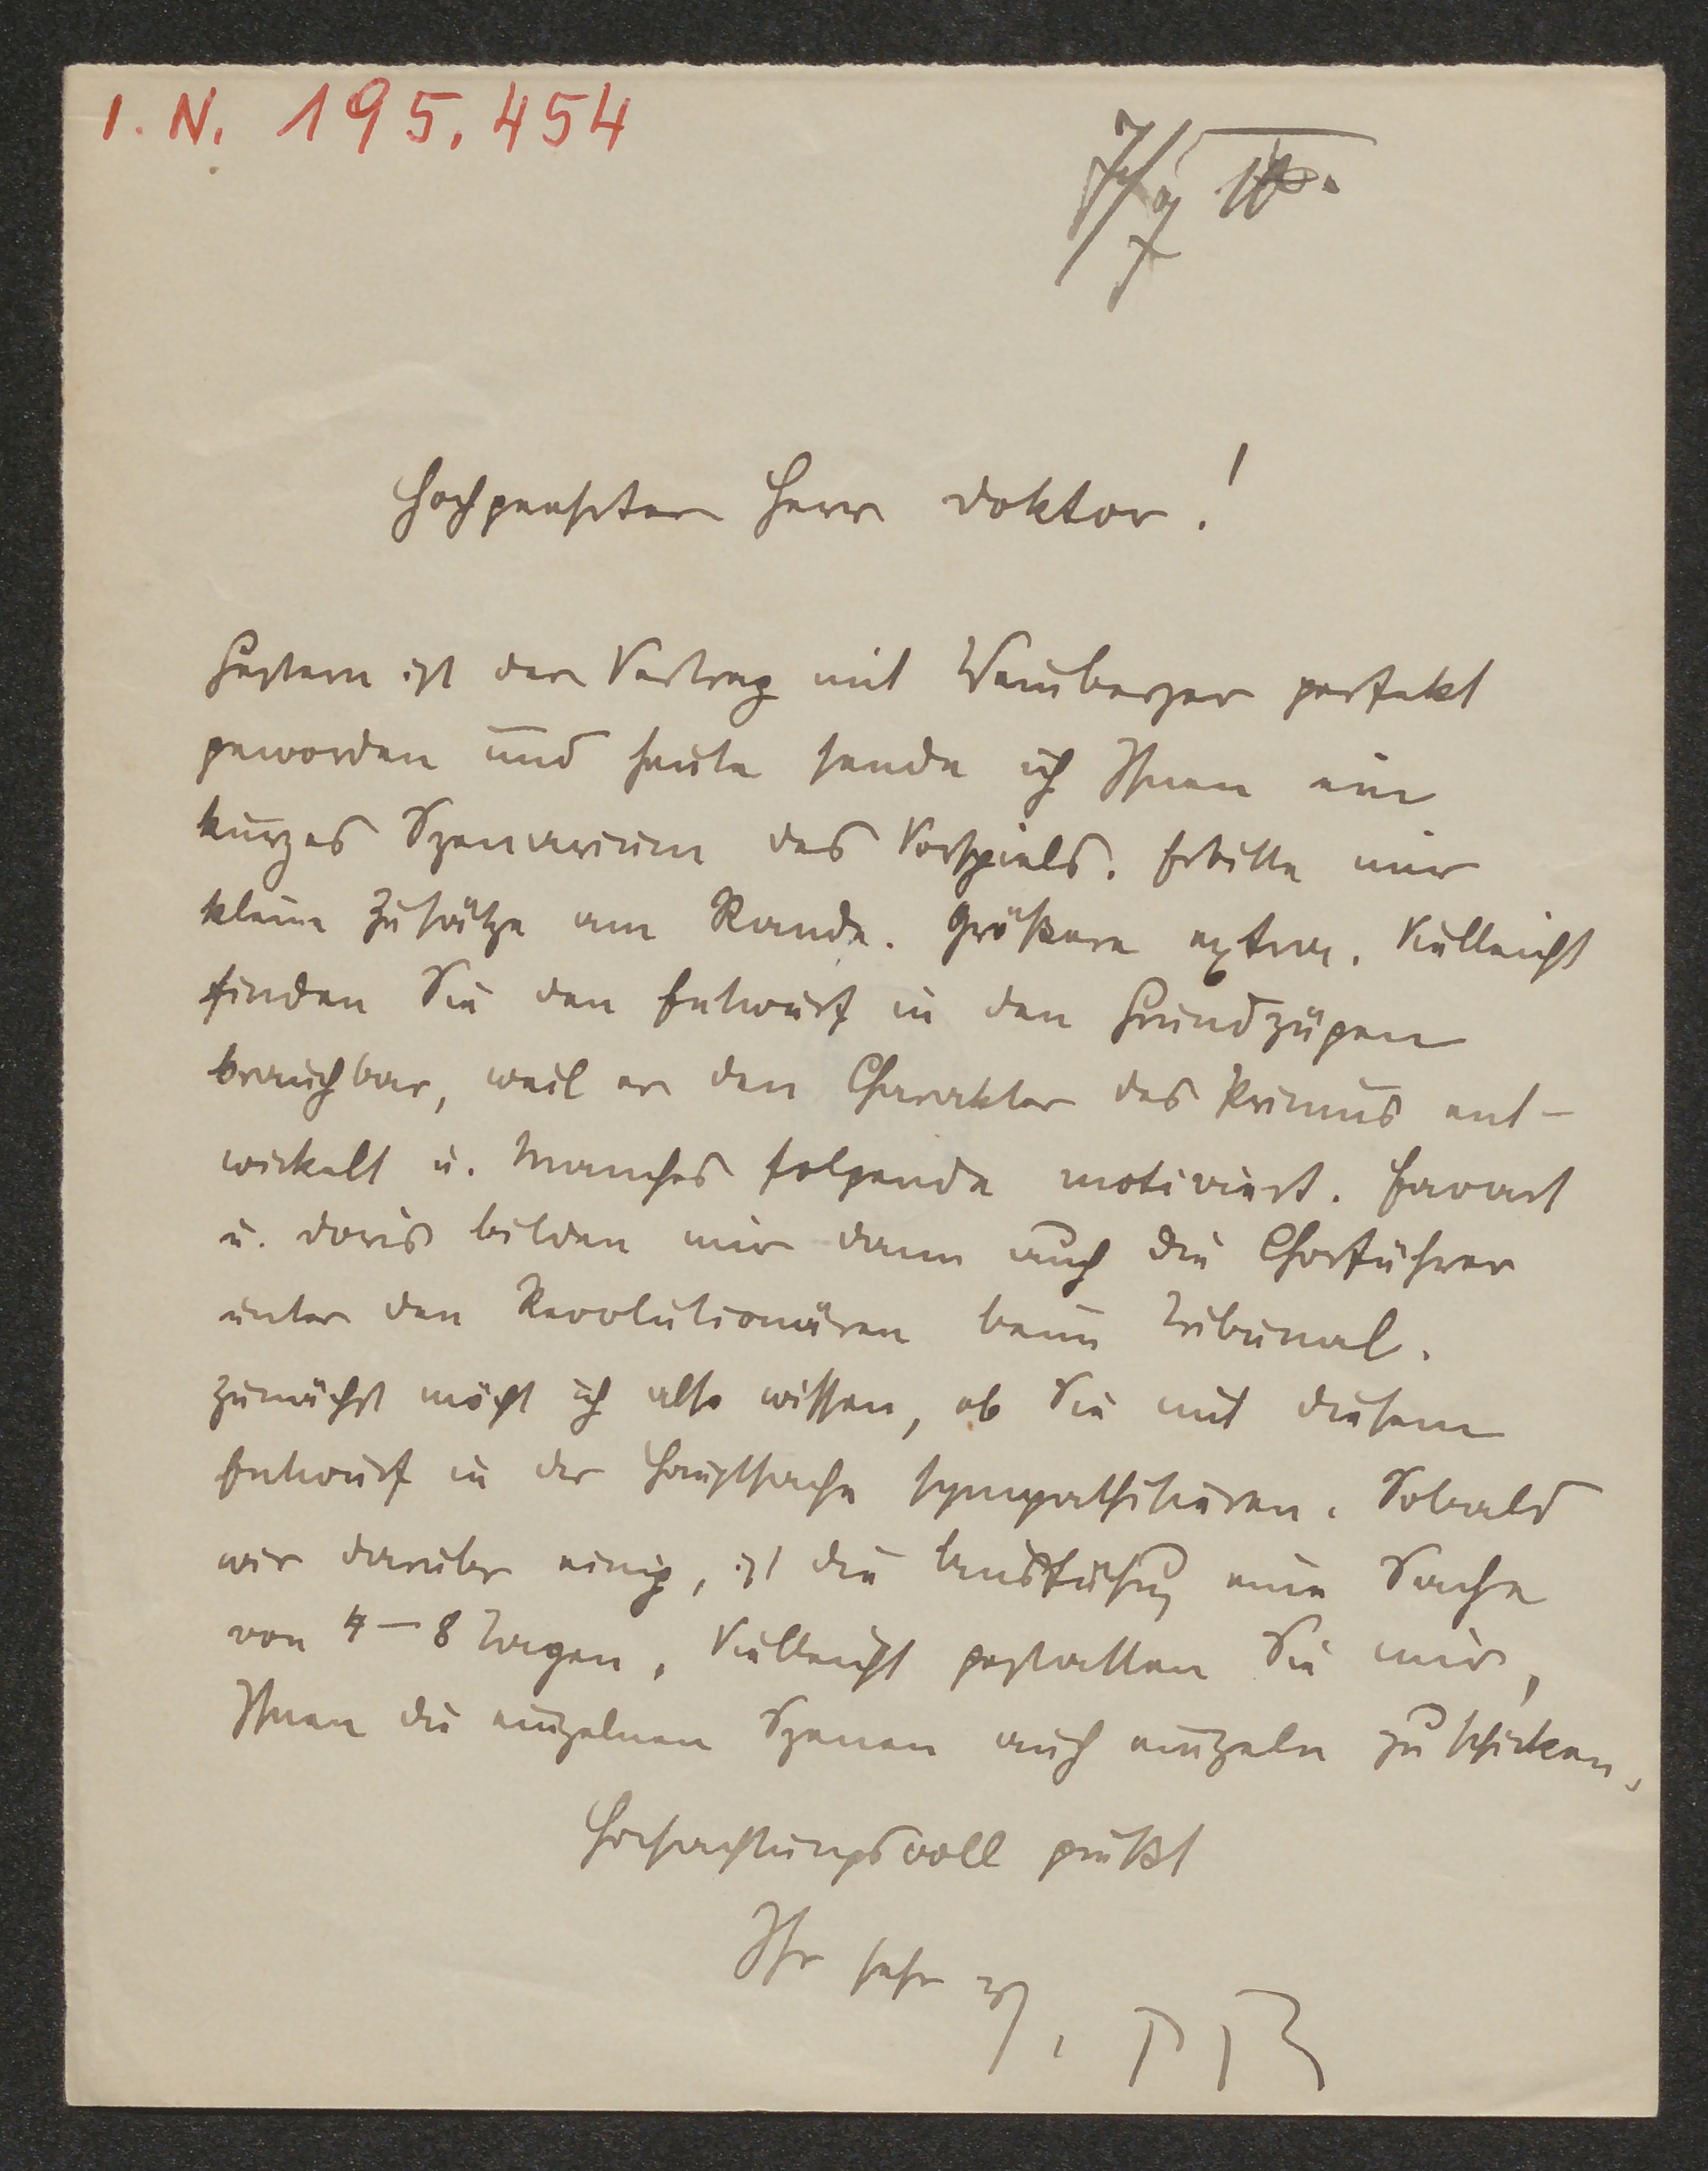 I. N. 195.454
Hochgeehrter Herr Doktor!
Gestern ist der Vertrag mit Weinberger perfekt
geworden und heute sende ich Ihnen ein
kurzes Szenarium des Vorspiels. Erbitte mir
kleine Zusätze am Rande. Größere extra. Vielleicht
finden Sie den Entwurf in den Grundzügen
brauchbar, weil er den Charakter des Primus ent-
wickelt u. Manches folgende motiviert. Favart
u. Doris bilden mir dann auch die Chorführer
unter den Revolutionären beim Tribunal.
Zunächst möcht ich also wissen, ob Sie mit diesem
Entwurf in der Hauptsache sympathisieren. Sobald
wir darüber einig, ist die Ausführung eine Sache
von 4-8 Tagen. Vielleicht gestatten Sie mir,
Ihnen die einzelnen Szenen auch einzeln zu schicken.
Hochachtungsvoll grüßt
Ihr sehr